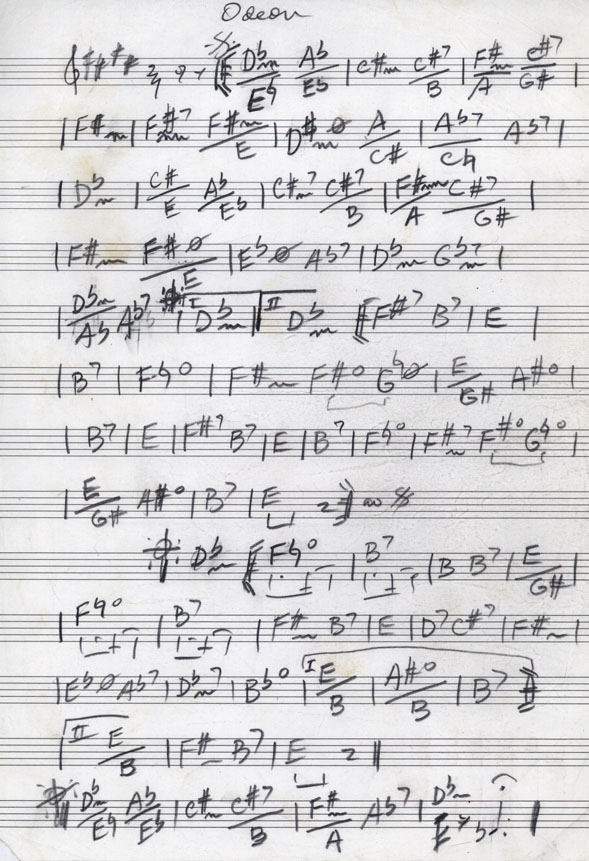 Odeon
D♭m/E♮ A♭/E♭ | C#m C#7/B | F#m/A C#7/G# |
| F#m | F#m7 F#m/E | D#mø A/C# | A♭7/C♮ A♭7 |
| D♭m | C#/E A♭/E♭ | C#m7 C#7/B | F#m/A C#7/G# |
| F#m F#ø/E | E♭ø A♭7 | D♭m G♭m7 |
| D♭m/A♭ A♭7 | I D♭m | II D♭m F#7 B7 | E |
| B7 | F♮o | F#m F#o G♮ø | E/G# A#o |
| B7 | E | F#7 B7 | E | B7 | F♮o | F#m7 F#o G♮o |
| E/G# A#o | B7 | E 2 ao 𝄋
D♭m F♮o | B7 | B B7 | E/G# |
| F♮o | B7 | F#m B7 | E | D7 C#7 | F#m |
| E♭ø A♭7 | D♭m7 | B♭o | I E/B | A#o/B | B7
| II E/B | F#m B7 | E 2 ||
D♭m/E♮ A♭/E♭ | C#m C#7/B | F#m/A A♭7 | D♭m |